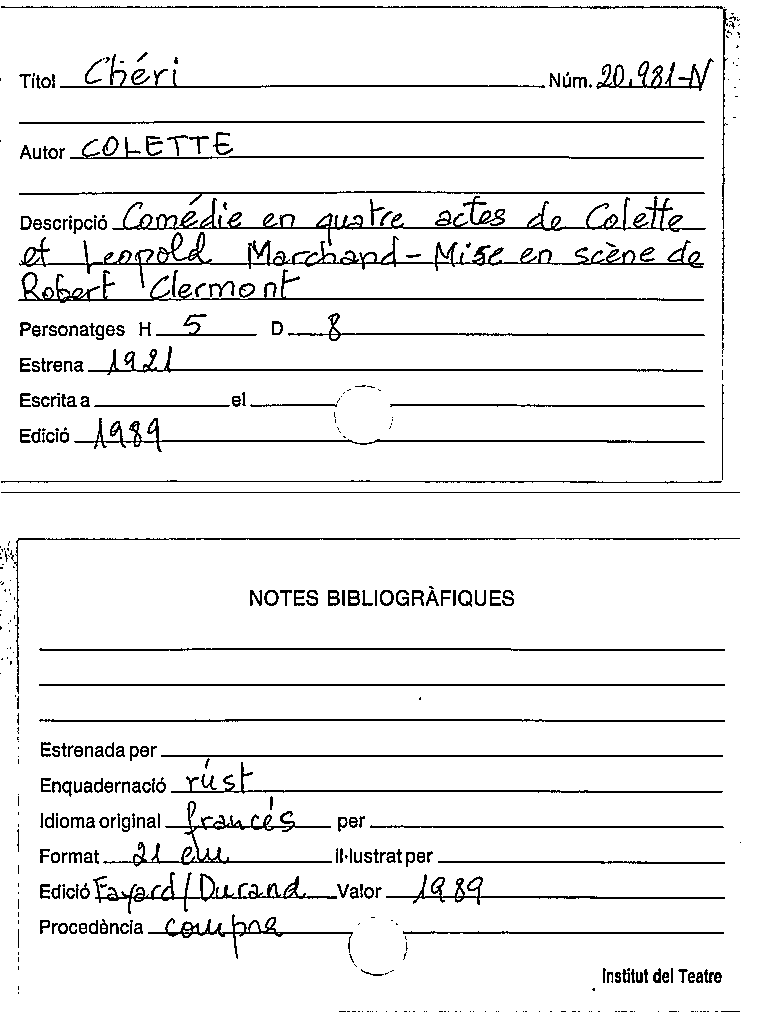 Títol Chéri Núm. 20.981-N
Autor COLETTE
Descripció Comédie en quatre actes de Colette
et Leopold Marchand - Mise en scène de
Robert Clermont
Personatges H 5 D 8
Estrena 1921
Escrita a el
Edició 1989
NOTES BIBLIOGRÀFIQUES
Estrenada per
Enquadernació rúst
Idioma original francés per
Format 21 cm il·lustrat per
Edició Fayard/Durand Valor 1989
Procedència compra
Institut del Teatre